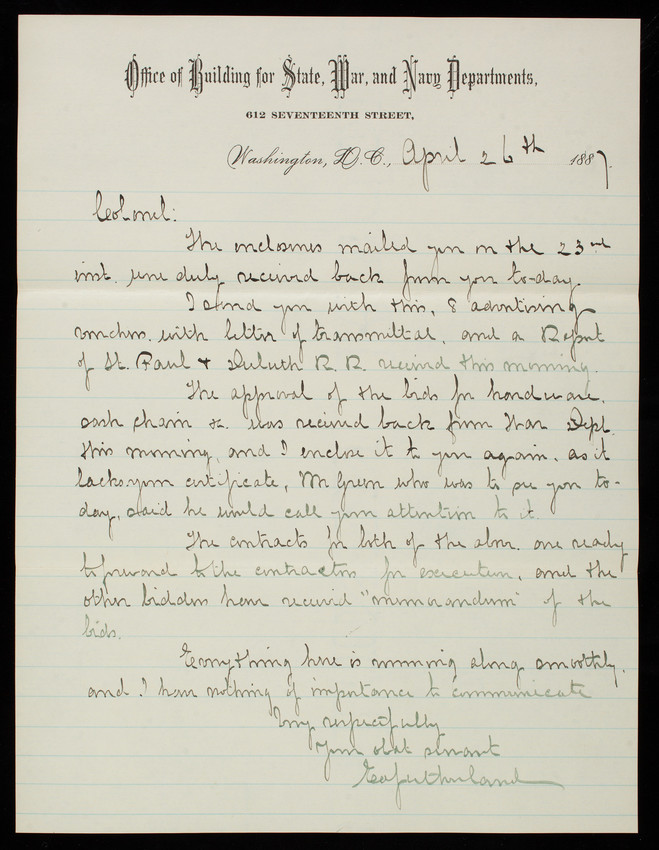 Office of Building for State, War, and Navy Departments,
612 SEVENTEENTH STREET,
Washington, D.C., April 26th 1887.
Colonel:
The enclosures mailed you on the 23rd
inst. were duly received back from you to-day.
I send you with this, 8 advertising
vouchers, with letter of transmittal, and a Report
of St. Paul & Duluth R. R. received this morning.
The approval of the bids for hardware,
sash chain &c. was received back from War Dept.
this morning, and I enclose it to you again, as it
lacks your certificate, Mr Green who was to see you to-
day, said he would call your attention to it.
The contracts for both of the above, are ready
to forward to the contractors for execution, and the
other bidders have received "memorandum" of the
bids.
Everything here is running along smoothly,
and I have nothing of importance to communicate
Very respectfully
Your obdt servant